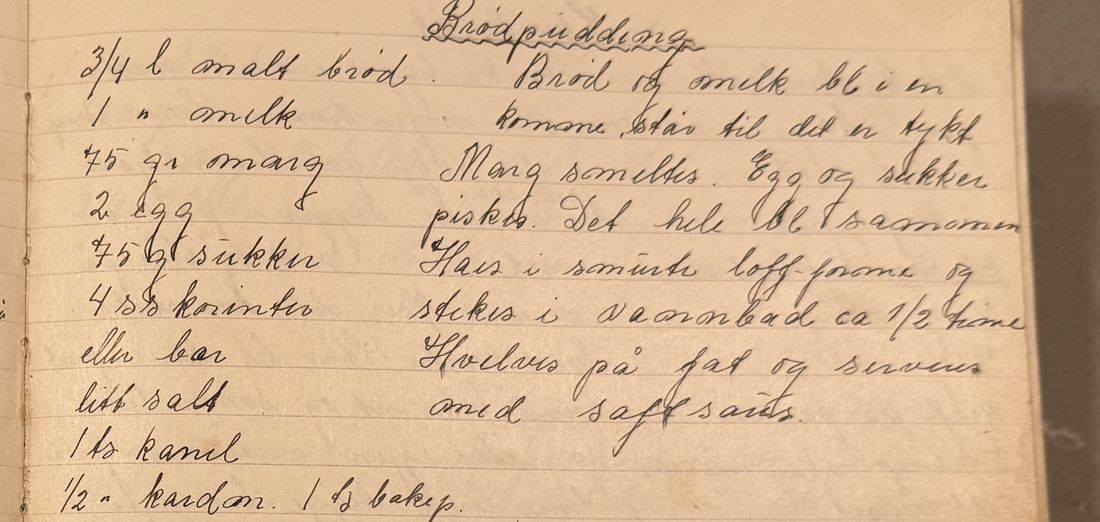 Brødpudding
3/4 l malt brød
1 " melk
75 gr marg
2 egg
75 g sukker
4 ss korinter
eller bær
litt salt
1 ts kanel
1/2 " kardm. 1 ts bakep.
Brød og melk bl i en
komme, står til det er tykt
Marg smeltes. Egg og sukker
piskes. Det hele bl sammen
Haes i smurte loff-forme og
stekes i vannbad ca 1/2 time
Hvelves på fat og serveres
med saftsaus.